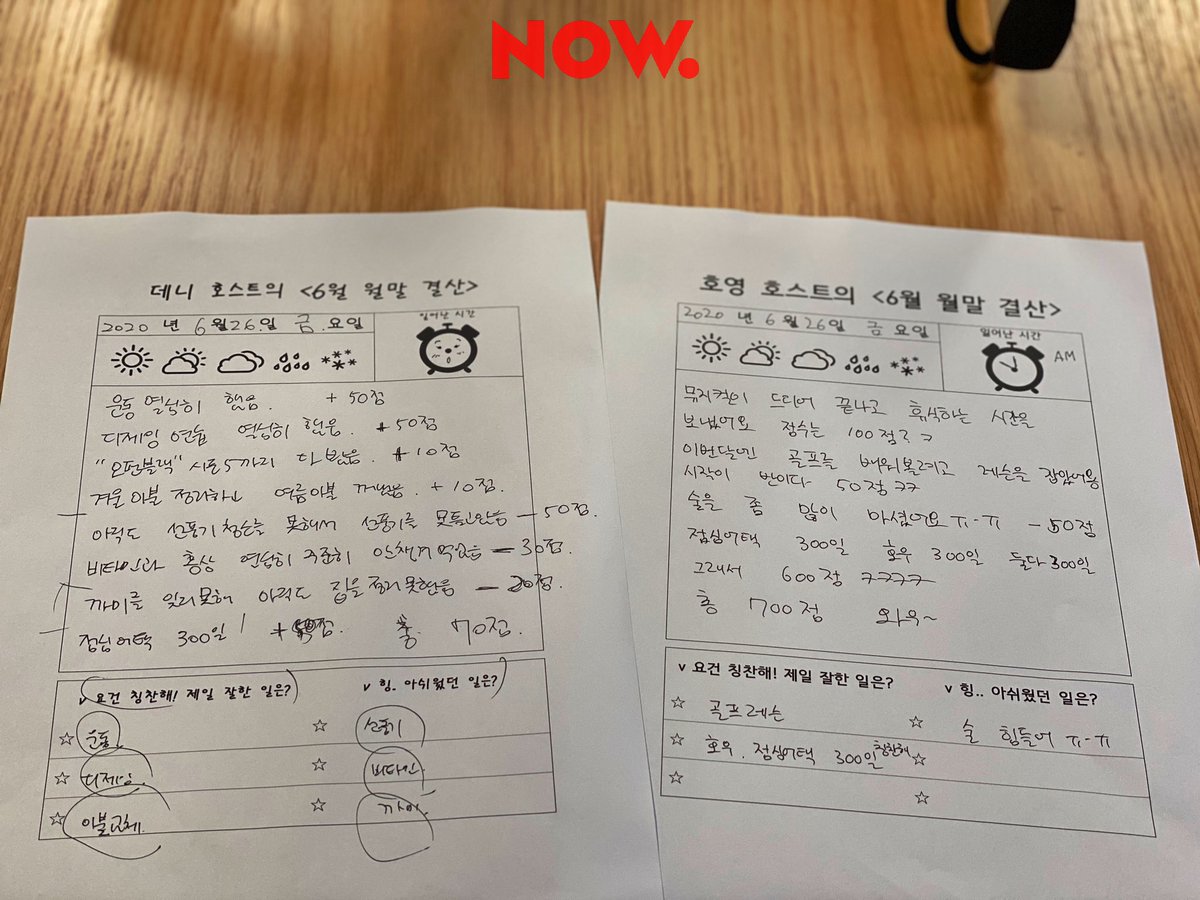 NOW.
데니 호스트의 <6월 월말 결산>
2020 년 6월 26일 금요일
일어난 시간
운동 열심히 했음. +50점
디제잉 연습 열심히 했음. +50점
"오펀블랙" 시즌5까지 다 봤음. +10점
겨울이불 정리하고 여름이불 꺼냈음. +10점.
아직도 선풍기청소를 못해서 선풍기를 못틀고있음 -50점.
비타민과 홍삼 열심히 꾸준히 안챙겨먹었음 -30점.
까미를 잊지못해 아직도 집을 정리 못했음 -20점.
점심어택 300일! 총 70점.
v 요건 칭찬해! 제일 잘한 일은?
☆ 운동
☆ 디제잉
☆ 이불교체
v 힝.. 아쉬웠던 일은?
☆ 선풍기
☆ 비타민
☆ 까미
호영 호스트의 <6월 월말 결산>
2020 년 6월 26일 금요일
일어난 시간
AM
뮤지컬이 드디어 끝나고 휴식하는 시간을
보냈어요 점수는 100점? ㅋ
이번달엔 골프를 배워볼려고 레슨을 잡았어용
시작이 반이다 50점 ㅋㅋ
술을 좀 많이 마셨어요 ㅠ-ㅠ -50점
점심어택 300일 호우 300일 둘다 300일
그래서 600점 ㅋㅋㅋㅋ
총 700점 와우~
v 요건 칭찬해! 제일 잘한 일은?
☆ 골프레슨
☆ 호우. 점심어택 300일 칭찬해
☆
v 힝.. 아쉬웠던 일은?
☆ 술 힘들어 ㅠ-ㅠ
☆
☆